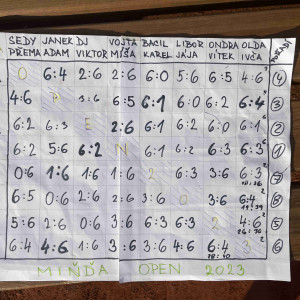 SEDY JANEK DJ VOJTA BACIL LIBOR ONDRA OLDA
PŘEMA ADAM VIKTOR MÍŠA KAREL JÁJA VÍTEK IVČA POŘADÍ
O 6:4 2:6 2:6 6:0 5:6 6:5 4:6 4
4:6 P 3:6 6:5 6:1 6:0 6:2 6:4 3
6:2 6:3 E 2:6 6:1 6:2 6:0 6:1
6:2 5:6 6:2 N 6:1 6:2 6:3 6:3
0:6 1:6 1:6 1:6 2 6:3 3:6 6:3
6:5 0:6 2:6 2:6 3:6 0 3:6 6:4 8
5:6 2:6 0:6 3:6 6:3 6:3 2 4:6 5
6:4 4:6 1:6 3:6 3:6 4:6 6:4 3 6
MIŇĎA OPEN 2023